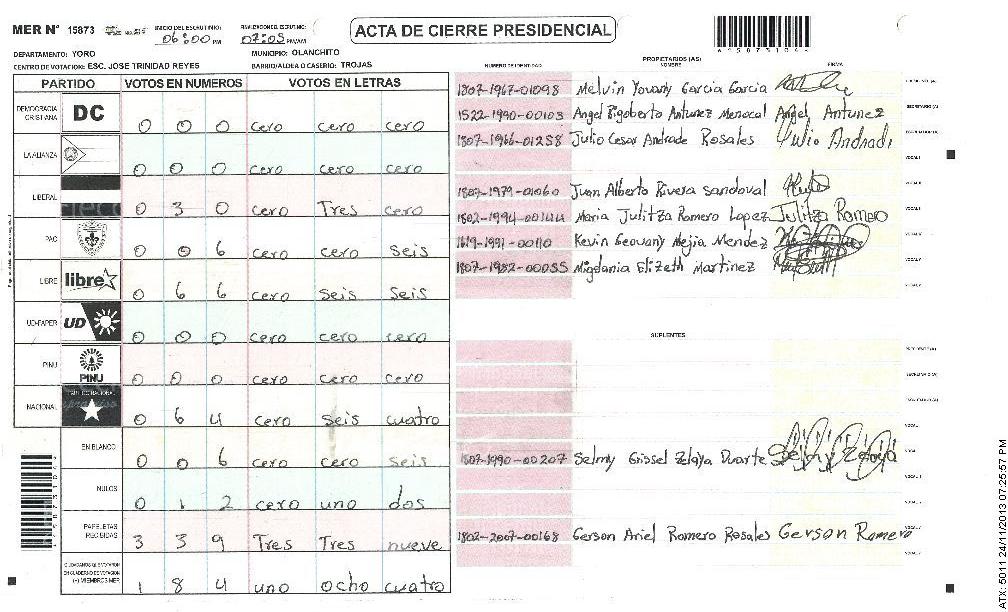 MER Nº 15873 INICIO DEL ESCRUTINIO: 06:00 PM FINALIZACION DEL ESCRUTINIO: 07:05 PM/AM ACTA DE CIERRE PRESIDENCIAL
DEPARTAMENTO: YORO MUNICIPIO: OLANCHITO
CENTRO DE VOTACION: ESC. JOSE TRINIDAD REYES BARRIO/ALDEA O CASERIO: TROJAS
PARTIDO VOTOS EN NUMEROS VOTOS EN LETRAS
DEMOCRACIA CRISTIANA DC 0 0 0 cero cero cero
LA ALIANZA 0 0 0 cero cero cero
LIBERAL 0 3 0 cero Tres cero
PAC 0 0 6 cero cero seis
LIBRE libre 0 6 6 cero seis seis
UD-FAPER UD 0 0 0 cero cero cero
PINU PINU 0 0 0 cero cero cero
NACIONAL 0 6 4 cero seis cuatro
EN BLANCO 0 0 6 cero cero seis
NULOS 0 1 2 cero uno dos
PAPELETAS RECIBIDAS 3 3 9 Tres Tres nueve
CIUDADANOS QUE VOTARON
EN CUADERNO DE VOTACION
(+) MIEMBROS MER 1 8 4 uno ocho cuatro
PROPIETARIOS (AS)
NUMERO DE IDENTIDAD NOMBRE FIRMA
1807-1967-01098 Melvin Yovany Garcia Garcia
1522-1990-00103 Angel Rigoberto Antunez Menocal Angel Antunez SECRETARIO (A)
1807-1966-01258 Julio Cesar Andrade Rosales Julio Andrade
VOCAL I
1807-1979-01060 Juan Alberto Rivera Sandoval
1802-1994-00144 Maria Julitza Romero Lopez Julitza Romero
1619-1991-00110 Kevin Geovany Mejia Mendez
1807-1982-00055 Migdania Elizeth Martinez
SUPLENTES
1807-1990-00207 Selmy Grissel Zelaya Duarte Selmy Zelaya
1802-2007-00168 Gerson Ariel Romero Rosales Gerson Romero
ATX: 5011 24/11/2013 07:25:57 PM